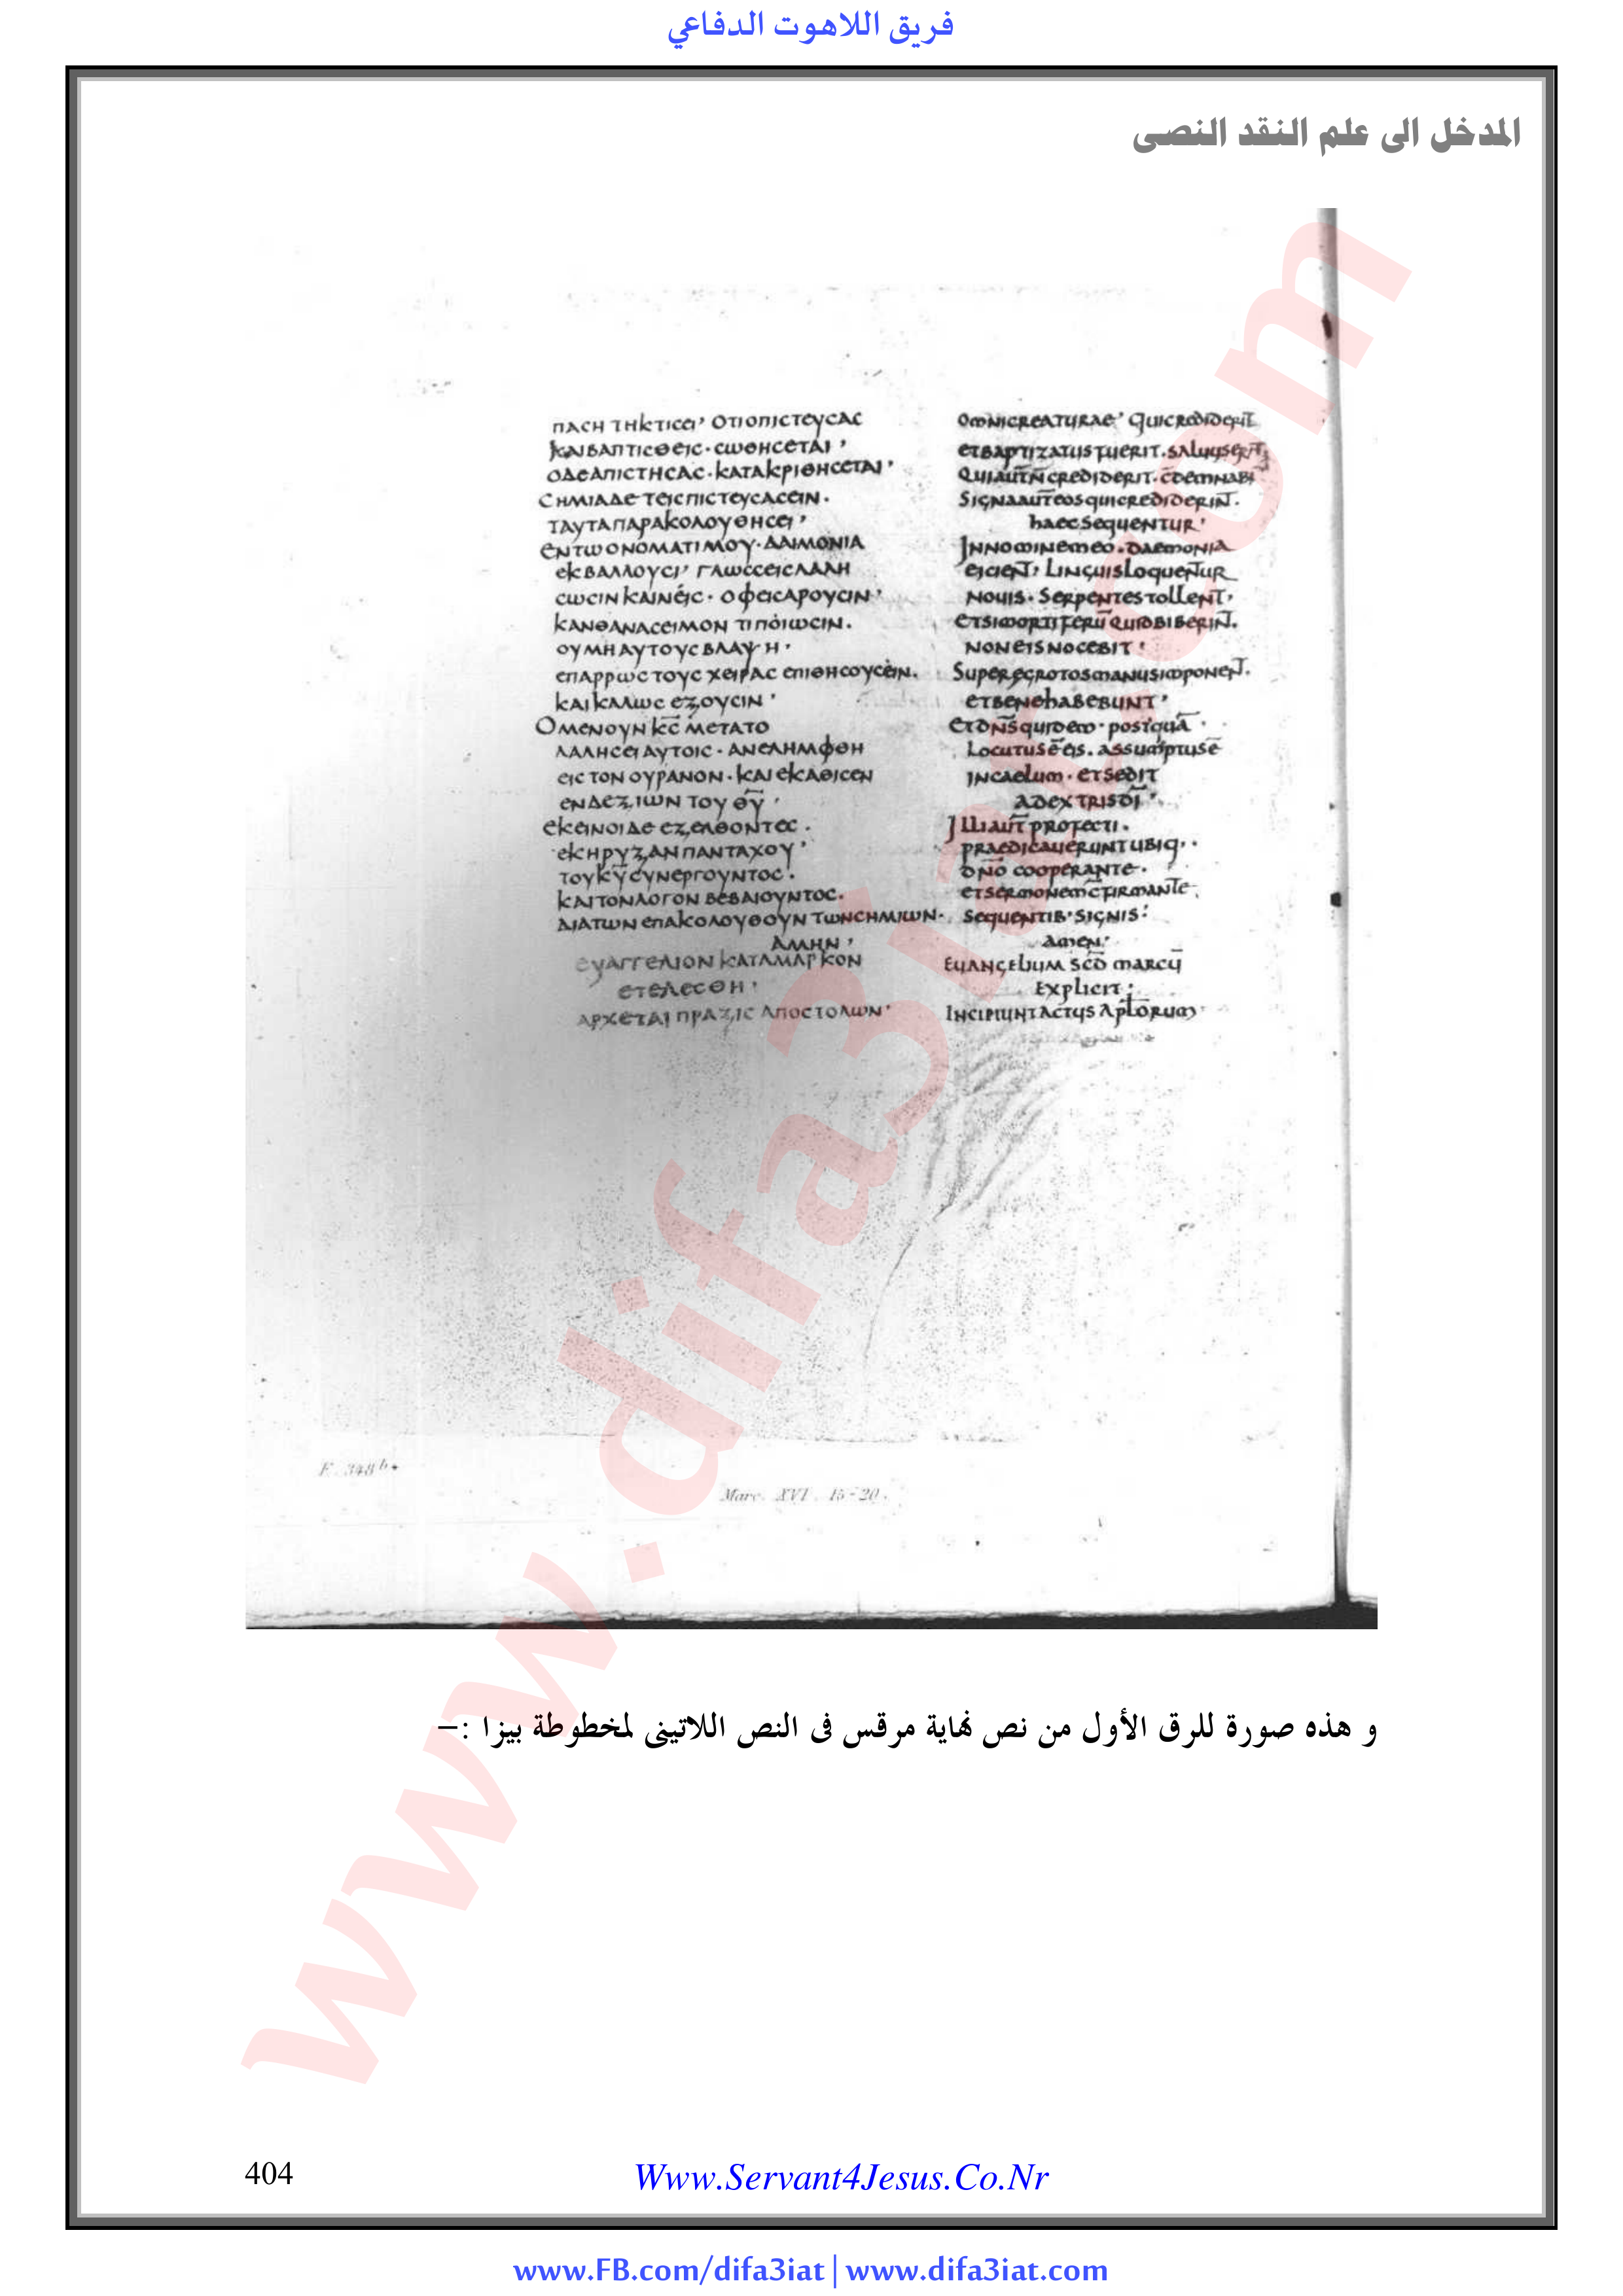 فريق اللاهوت الدفاعي
المدخل الى علم النقد النصى
ΠΑCΗ ΤΗΚΤΙCΕΙ’ ΟΤΙΟΠΙCΤΕΥCΑC
ΚΑΙΒΑΠΤΙCΘΕΙC·CΩΘΗCΕΤΑΙ’
ΟΔΕΑΠΙCΤΗCΑC·ΚΑΤΑΚΡΙΘΗCΕΤΑΙ’
CΗΜΙΑΔΕ ΤΕΙCΠΙCΤΕΥCΑCΕΙΝ·
ΤΑΥΤΑΠΑΡΑΚΟΛΟΥΘΗCΕΙ’
ΕΝΤΩΟΝΟΜΑΤΙΜΟΥ·ΔΑΙΜΟΝΙΑ
ΕΚΒΑΛΛΟΥCΙ’ ΓΛΩCCΕΙCΛΑΛΗ
CΩCΙΝΚΑΙΝΕΙC·ΟΦΕΙCΑΡΟΥCΙΝ’
ΚΑΝΘΑΝΑCΕΙΜΟΝ ΤΙΠΟΙΩCΙΝ·
ΟΥΜΗΑΥΤΟΥCΒΛΑΨΗ·
ΕΠΑΡΡΩCΤΟΥC ΧΕΙΡΑC ΕΠΙΘΗCΟΥCΕΙΝ·
ΚΑΙΚΑΛΩC ΕΞΟΥCΙΝ’
ΟΜΕΝΟΥΝ Κ̅C̅ ΜΕΤΑΤΟ
ΛΑΛΗCΕΙ ΑΥΤΟΙC·ΑΝΕΛΗΜΦΘΗ
ΕΙC ΤΟΝ ΟΥΡΑΝΟΝ·ΚΑΙ ΕΚΑΘΙCΕΝ
ΕΝΔΕΞΙΩΝ ΤΟΥ Θ̅Υ̅’
ΕΚΕΙΝΟΙΔΕ ΕΞΕΛΘΟΝΤΕC·
ΕΚΗΡΥΞΑΝ ΠΑΝΤΑΧΟΥ’
ΤΟΥΚ̅Υ̅CΥΝΕΡΓΟΥΝΤΟC·
ΚΑΙΤΟΝΛΟΓΟΝ ΒΕΒΑΙΟΥΝΤΟC·
ΔΙΑΤΩΝ ΕΠΑΚΟΛΟΥΘΟΥΝ ΤΩΝCΗΜΙΩΝ·
ΑΜΗΝ’
ΕΥΑΓΓΕΛΙΟΝ ΚΑΤΑΜΑΡΚΟΝ
ΕΤΕΛΕCΘΗ’
ΑΡΧΕΤΑΙ ΠΡΑΞΙC ΑΠΟCΤΟΛΩΝ’
OMNICREATURAE’ QUICREDIDERIT
ETBAPTIZATUSFUERIT·SALUUSERIT
QUIAUT̅N̅CREDIDERIT·C̅DEMNABI
SIGNAAUT̅EOSQUICREDIDERINT·
HAECSEQUENTUR’
INNOMINEMEO·DAEMONIA
EICIENT’ LINGUISLOQUENTUR
NOUIS·SERPENTESTOLLENT’
ETSIMORTIFERU̅ QUIDBIBERINT·
NONEISNOCEBIT’
SUPEREGROTOSMANUSIMPONENT·
ETBENEHABEBUNT’
ETDN̅SQUIDEM·POSTQUA̅·
LOCUTUSE̅EIS·ASSUMPTUSE̅
INCAELUM·ETSEDIT
ADEXTRISDI̅’
ILLIAUT̅ PROFECTI·
PRAEDICAUERUNTUBIQ··
DN̅O COOPERANTE·
ETSERMONEMC̅FIRMANTE·
SEQUENTIB·SIGNIS:
AMEN·
EUANGELIUM SCD̅ MARCU̅
EXPLICIT:
INCIPIUNTACTUS APL̅ORUM·
F. 348 b.
Marc. XVI. 15-20.
و هذه صورة للرق الأول من نص نهاية مرقس فى النص اللاتينى لمخطوطة بيزا :–
404
Www.Servant4Jesus.Co.Nr
www.FB.com/difa3iat | www.difa3iat.com
www.difa3iat.com